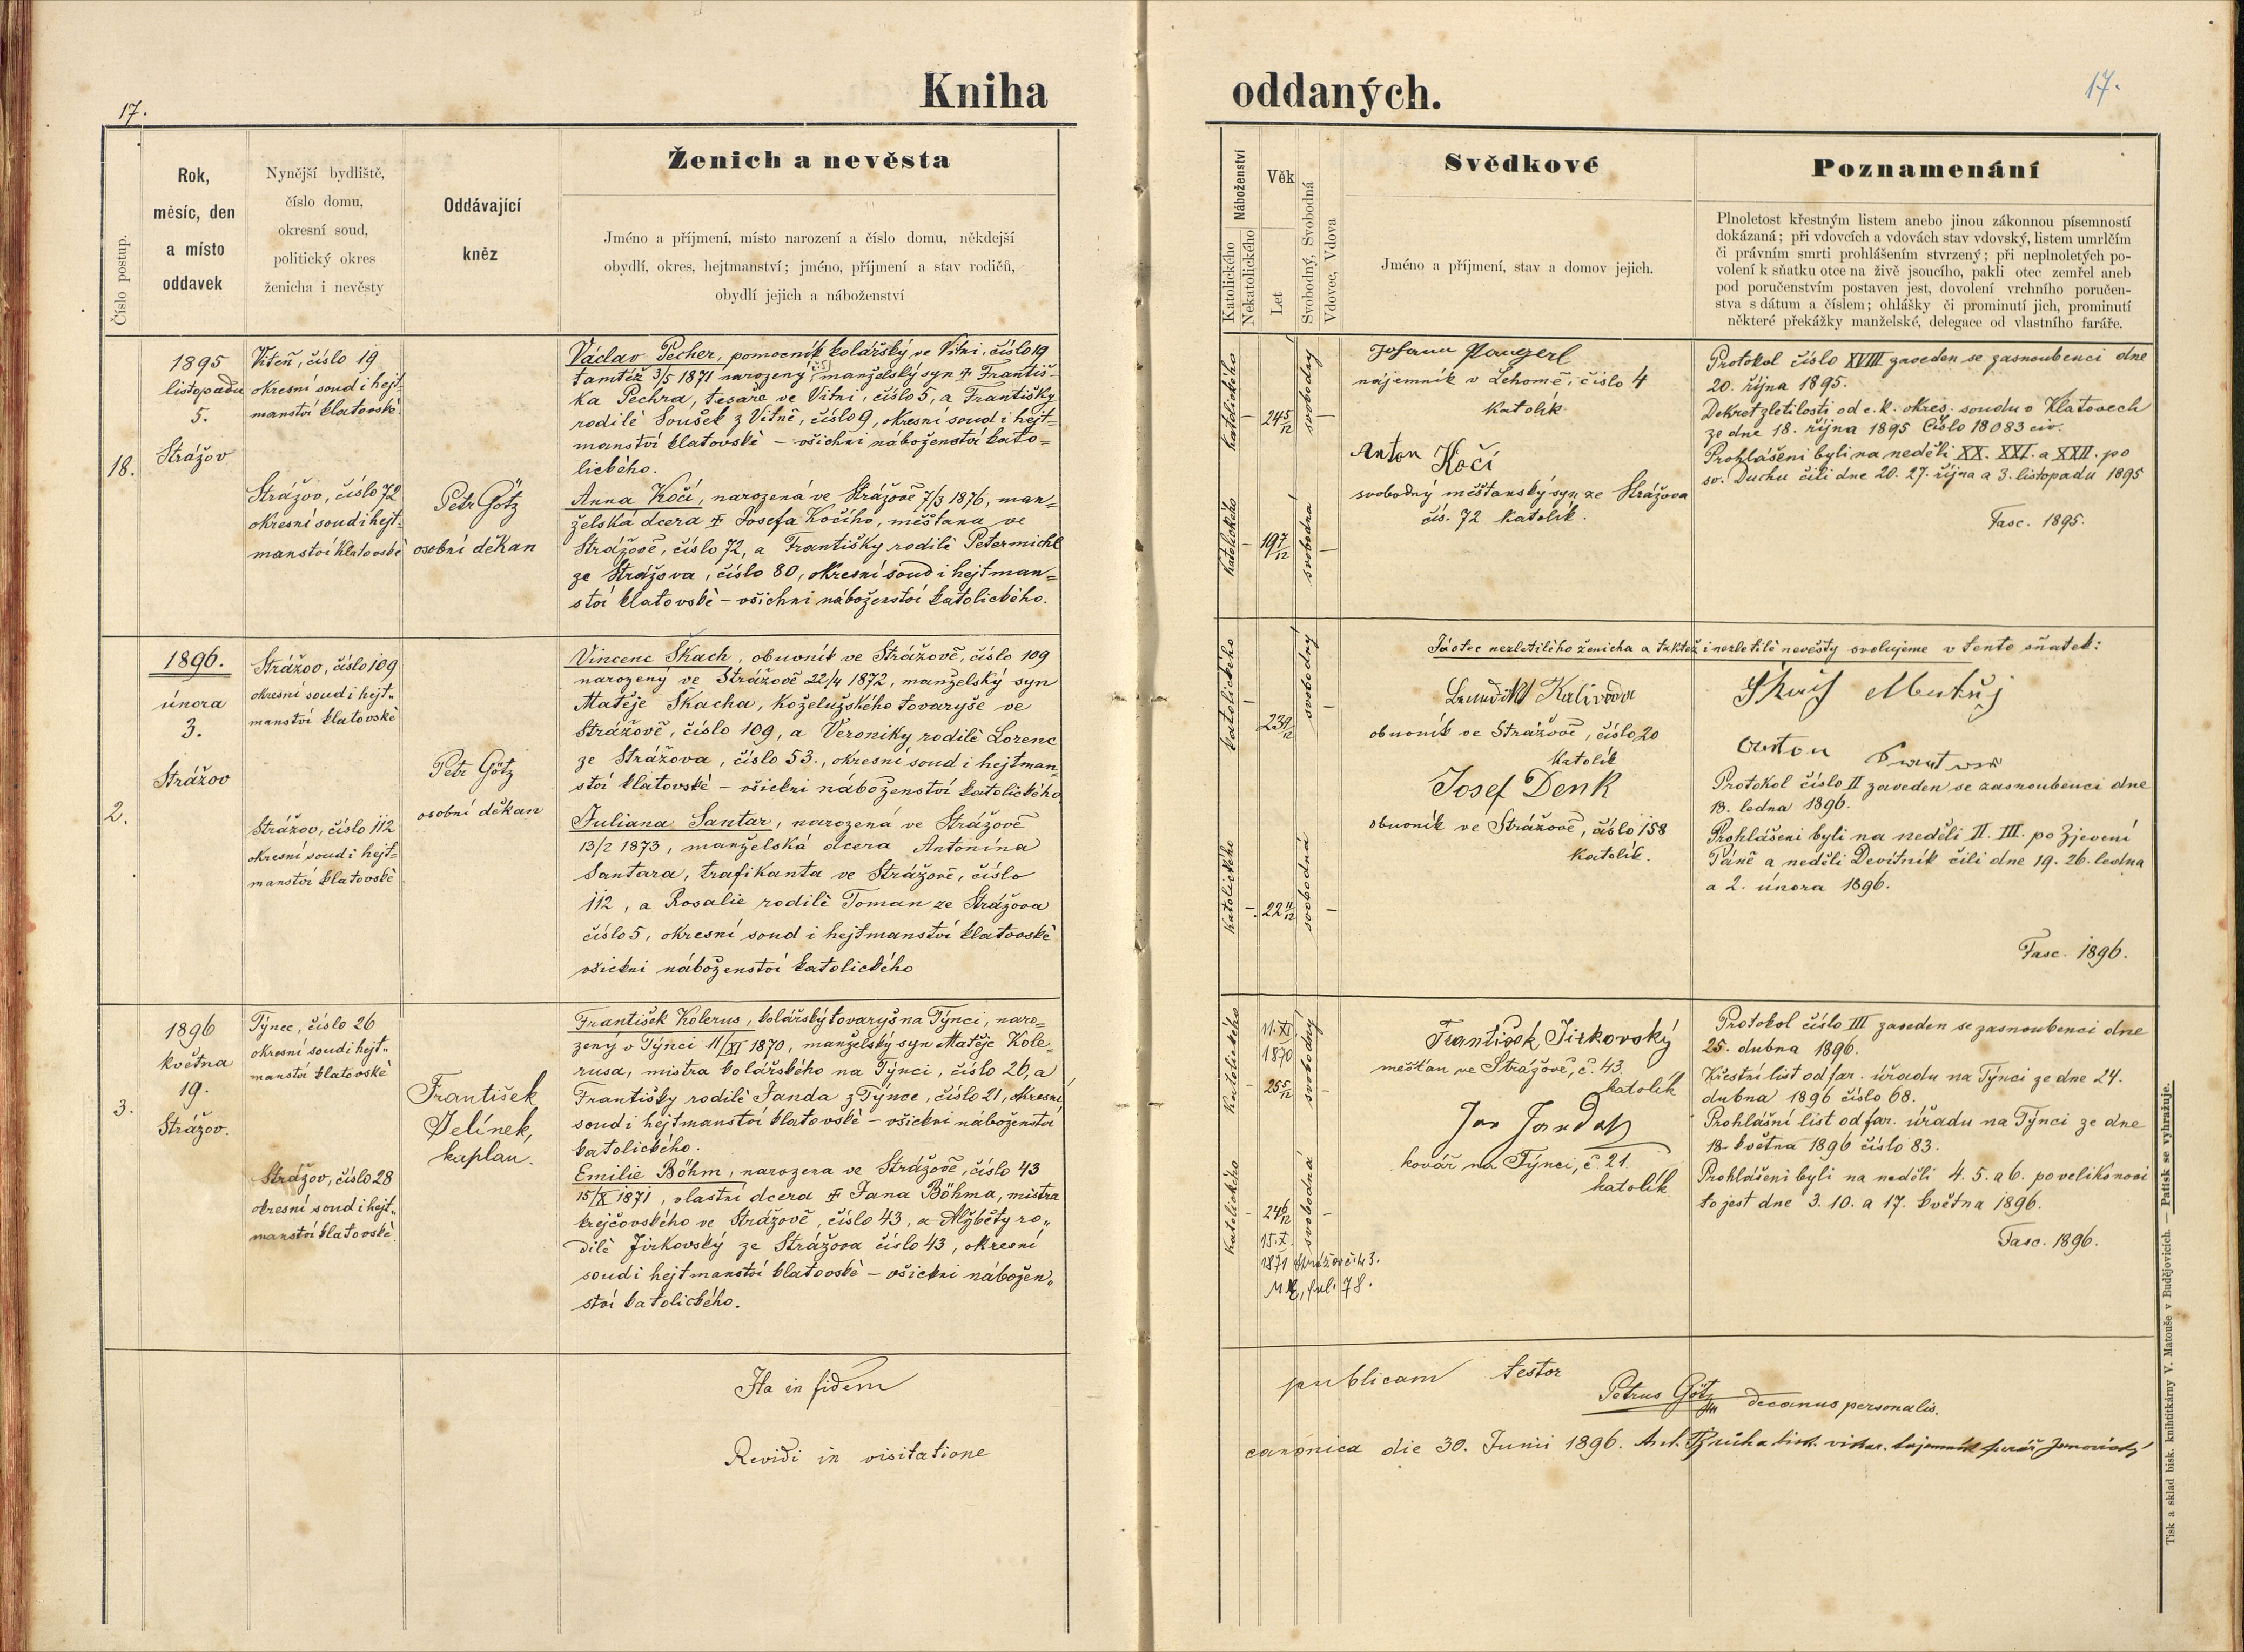 17.
Kniha
Číslo postup.
Rok,
měsíc, den
a místo
oddavek
Nynější bydliště,
číslo domu,
okresní soud,
politický okres
ženicha i nevěsty
Oddávající
kněz
Ženich a nevěsta
Jméno a příjmení, místo narození a číslo domu, někdejší
obydlí, okres, hejtmanství; jméno, příjmení a stav rodičů,
obydlí jejich a náboženství
18.
1895
listopadu
5.
Strážov
Viteň, číslo 19
okresní soud i hejt-
manství klatovské.
Strážov, číslo 72
okresní soud i hejt-
manství klatovské
Petr Götz
osobní děkan
Václav Pecher, pomocník kolářský ve Vitni, číslo 19
tamtéž 3/5 1871 narozený, manželský syn ✝ Františ-
ka Pechra, tesaře ve Vitni, číslo 5, a Františky
rodilé Soušek z Vitně, číslo 9, okresní soud i hejt=
manství klatovské – všichni náboženství kato=
lického.
Anna Kočí, narozená ve Strážově 7/3 1876, man=
želská dcera ✝ Josefa Kočího, měšťana ve
Strážově, číslo 72, a Františky rodilé Petermichl
ze Strážova, číslo 80, okresní soud i hejtman=
ství klatovské – všichni náboženství katolického.
2.
1896.
února
3.
Strážov
Strážov, číslo 109
okresní soud i hejt„
manství klatovské
Strážov, číslo 112
okresní soud i hejt=
manství klatovské
Petr Götz
osobní děkan
Vincenc Škach, obuvník ve Strážově, číslo 109
narozený ve Strážově 22/4 1872, manželský syn
Matěje Škacha, koželužského tovaryše ve
Strážově, číslo 109, a Veroniky rodilé Lorenc
ze Strážova, číslo 53., okresní soud i hejtman„
ství klatovské – všickni náboženství katolického
Juliana Santar, narozená ve Strážově
13/2 1873, manželská dcera Antonína
Santara, trafikanta ve Strážově, číslo
112, a Rosalie rodilé Toman ze Strážova
číslo 5, okresní soud i hejtmanství klatovské
všickni náboženství katolického
3.
1896
května
19.
Strážov.
Týnec, číslo 26
okresní soud i hejt„
manství klatovské
Strážov, číslo 28
okresní soud i hejt„
manství klatovské.
František
Jelínek,
kaplan.
František Kolerus, kolářský tovaryš na Týnci, naro=
zený v Týnci 11/XI 1870, manželský syn Matěje Kole=
rusa, mistra kolářského na Týnci, číslo 26, a
Františky rodilé Janda z Týnce, číslo 21, okresní
soud i hejtmanství klatovské – všickni náboženství
katolického.
Emilie Böhm, narozena ve Strážově, číslo 43
15/X 1871, vlastní dcera ✝ Jana Böhma, mistra
krejčovského ve Strážově, číslo 43, a Alžběty ro„
dilé Jirkovský ze Strážova číslo 43, okresní
soud i hejtmanství klatovské – všickni nábožen„
ství katolického.
Ita in fidem
Revidi in visitatione
oddaných.
17.
Náboženství
Katolického
Nekatolického
Věk
Let
Svobodný, Svobodná
Vdovec, Vdova
Svědkové
Jméno a příjmení, stav a domov jejich.
Poznamenání
Plnoletost křestným listem anebo jinou zákonnou písemností
dokázaná; při vdovcích a vdovách stav vdovský, listem umrlčím
či právním smrti prohlášením stvrzený; při neplnoletých po-
volení k sňatku otce na živě jsoucího, pakli otec zemřel aneb
pod poručenstvím postaven jest, dovolení vrchního poručen-
stva s dátum a číslem; ohlášky či prominutí jich, prominutí
některé překážky manželské, delegace od vlastního faráře.
katolického
– 24 5/12 svobodný –
katolického
– 19 7/12 svobodná –
Johann
nájemník v Lehomě, číslo 4
katolík
Anton Kočí
svobodný měšťanský syn ze Strážova
čís. 72 katolík.
Protokol číslo XVIII zaveden se zasnoubenci dne
20. října 1895.
Dekret zletilosti od c. k. okres. soudu v Klatovech
ze dne 18. října 1895 Číslo 18083 civ.
Prohlášeni byli na neděli XX. XXI. a XXII. po
sv. Duchu čili dne 20. 27. října a 3. listopadu 1895
Fasc. 1895.
katolického
– 23 9/12 svobodný –
katolického
– 22 11/12 svobodná –
Já otec nezletilého ženicha a taktéž i nezletilé nevěsty svolujeme v tento sňatek:
Kalivoda
obuvník ve Strážově, číslo 20
katolík
Josef Denk
obuvník ve Strážově, číslo 158
katolík.
Škach Matěj
Anton
Protokol číslo II zaveden se zasnoubenci dne
13. ledna 1896.
Prohlášeni byli na neděli II. III. po Zjevení
Páně a neděli Devítník čili dne 19. 26. ledna
a 2. února 1896.
Fasc. 1896.
Katolického
11. XI
1870
– 25 5/12 svobodný –
katolického
– 24 6/12 svobodná –
15. X.
1871 Strážov č. 43.
fol. 78.
František Jirkovský
měšťan ve Strážově, č. 43.
katolík
Jan Jandaš
kovář na Týnci, č. 21.
katolík
Protokol číslo III zaveden se zasnoubenci dne
25. dubna 1896.
Křestní list od far. úřadu na Týnci ze dne 24.
dubna 1896 číslo 68.
Prohlášní list od far. úřadu na Týnci ze dne
18. května 1896 číslo 83.
Prohlášeni byli na neděli 4. 5. a 6. po velikonoci
to jest dne 3. 10. a 17. května 1896.
Fasc. 1896.
publicam testor
Petrus Götz decanus personalis.
canonica die 30. Junii 1896. Ant. bisk. vikar. tajemník farář
Tisk a sklad bisk. knihtiskárny V. Matouše v Budějovicích. — Patisk se vyhražuje.